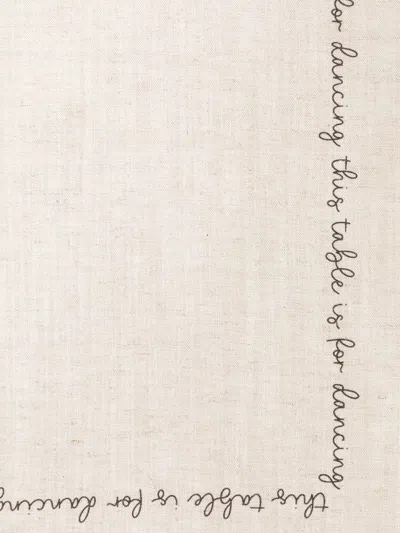 for dancing this table is for dancing
this table is for dancing